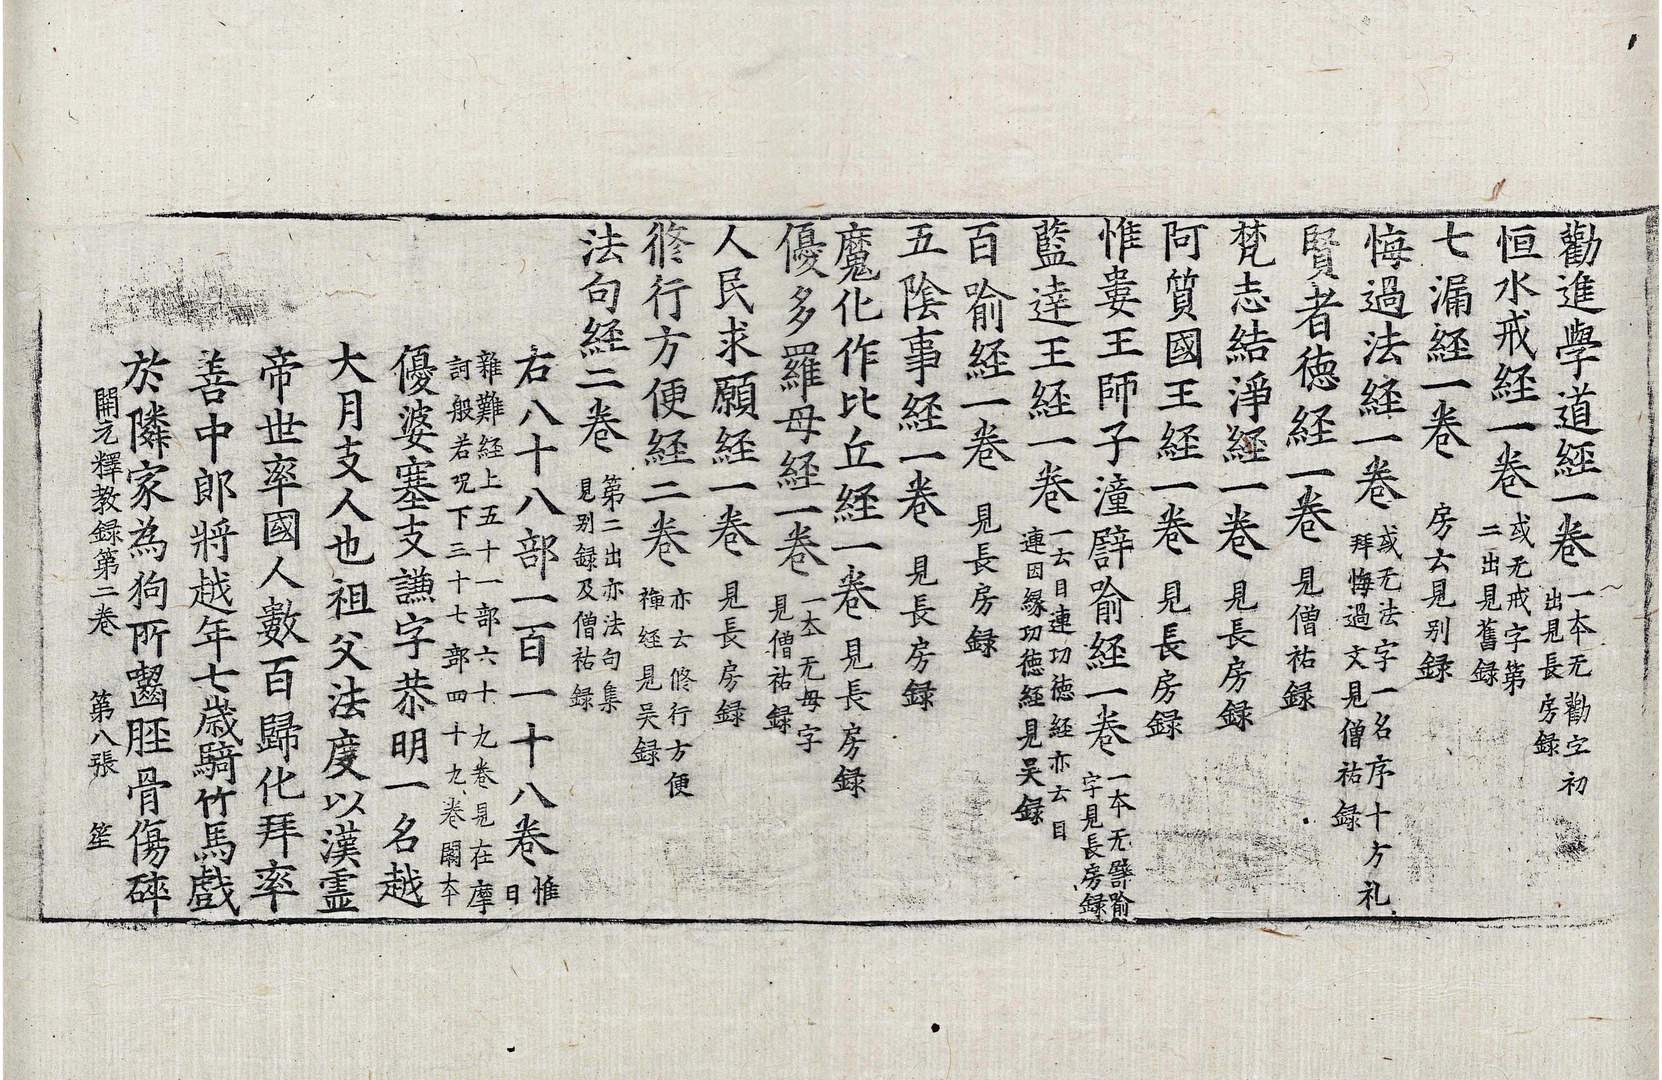 勸進學道經一卷 一本无勸字初出見長房錄
恒水戒經一卷 或无戒字第二出見舊錄
七漏經一卷 房云見别錄
悔過法經一卷 或无法字一名序十方礼拜悔過文見僧祐錄
賢者德經一卷 見僧祐錄
梵志結淨經一卷 見長房錄
阿質國王經一卷 見長房錄
惟婁王師子湩譬喻經一卷 一本无譬喻字見長房錄
藍達王經一卷 一云目連功德經亦云目連因緣功德經見吴錄
百喻經一卷 見長房錄
五陰事經一卷 見長房錄
魔化作比丘經一卷 見長房錄
優多羅母經一卷 一本无母字見僧祐錄
人民求願經一卷 見長房錄
修行方便經二卷 亦云修行方便禪經見吴錄
法句經二卷 第二出亦法句集見别錄及僧祐錄
右八十八部一百一十八卷 惟日
雜難經上五十一部六十九卷見在摩
訶般若呪下三十七部四十九卷闕本
優婆塞支謙字恭明一名越
大月支人也祖父法度以漢靈
帝世率國人數百歸化拜率
善中郎將越年七歲騎竹馬戲
於隣家為狗所齧脛骨傷碎
開元釋教錄第二卷 第八張 笙